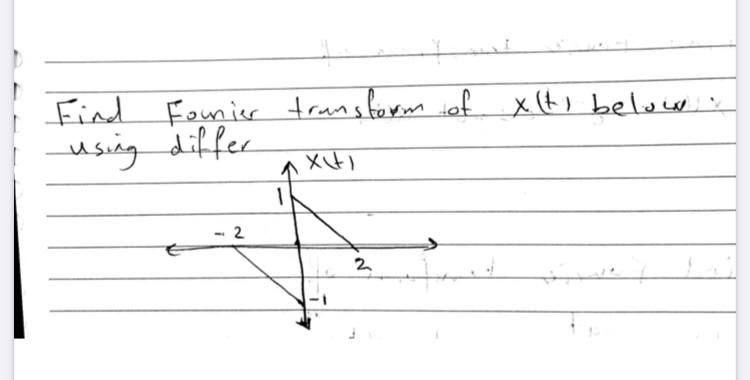 Find Fourier transform of x(t) below:
using differ
x(t)
1
-2
2
-1